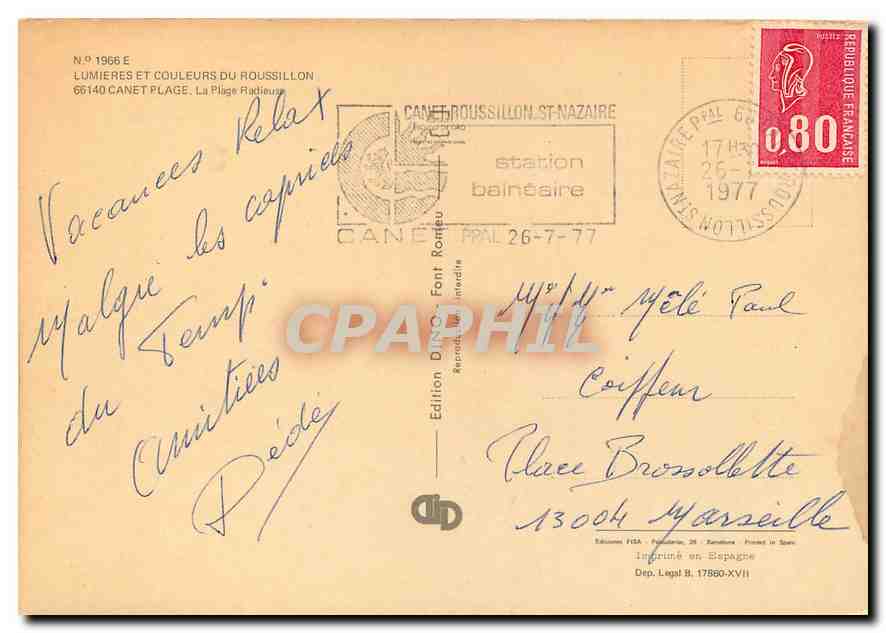 N.º 1966 E
LUMIERES ET COULEURS DU ROUSSILLON
66140 CANET PLAGE. La Plage Radieuse
Vacances Relax
Malgré les caprices
du Temps
Amitiées
Dédé
CANET-ROUSSILLON-ST-NAZAIRE
station
balnéaire
CANET PPAL 26-7-77
ROUSSILLON ST NAZAIRE PPAL 66
17 H
26-
1977
POSTES
REPUBLIQUE FRANÇAISE
0,80
Edition DINO - Font Romeu
Reproduction interdite
CPAPHIL
Mr/Mme Mélé Paul
Coiffeur
Place Brossollette
13004 Marseille
Ediciones FISA - Palaudarias, 26 - Barcelona - Printed in Spain
Imprimé en Espagne
Dep. Legal B. 17860-XVII